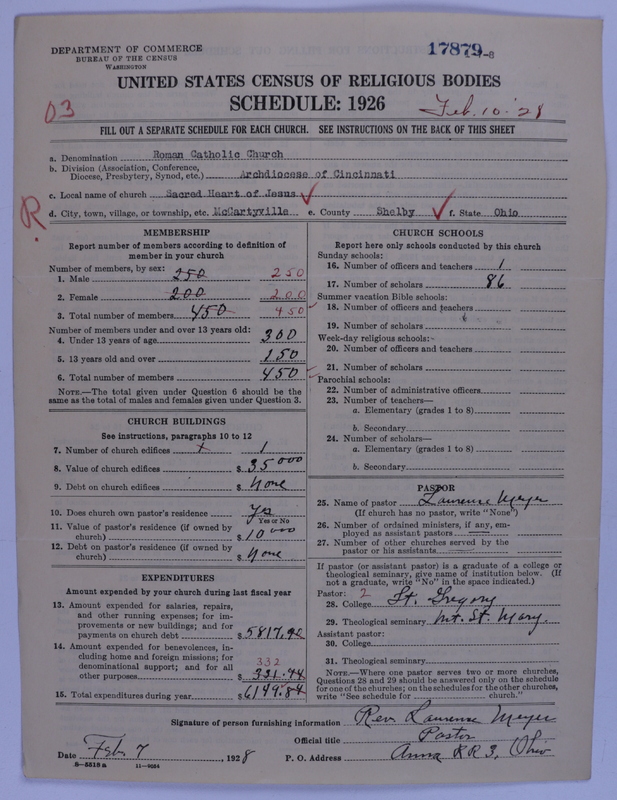 DEPARTMENT OF COMMERCE
BUREAU OF THE CENSUS
WASHINGTON
17879
1-7-8
UNITED STATES CENSUS OF RELIGIOUS BODIES
SCHEDULE: 1926
D3
Feb. 10 '28
FILL OUT A SEPARATE SCHEDULE FOR EACH CHURCH. SEE INSTRUCTIONS ON THE BACK OF THIS SHEET
a. Denomination Roman Catholic Church
b. Division (Association, Conference, Diocese, Presbytery, Synod, etc.) Archdiocese of Cincinnati
c. Local name of church Sacred Heart of Jesus
R.
d. City, town, village, or township, etc. McCartyville e. County Shelby f. State Ohio
MEMBERSHIP
Report number of members according to definition of member in your church
Number of members, by sex:
1. Male 250 250
2. Female 200 200
3. Total number of members 450 450
Number of members under and over 13 years old:
4. Under 13 years of age 300
5. 13 years old and over 150
6. Total number of members 450
NOTE.—The total given under Question 6 should be the same as the total of males and females given under Question 3.
CHURCH BUILDINGS
See instructions, paragraphs 10 to 12
7. Number of church edifices 1
8. Value of church edifices $ 35000
9. Debt on church edifices $ None
10. Does church own pastor's residence Yes
Yes or No
11. Value of pastor's residence (if owned by church) $ 10000
12. Debt on pastor's residence (if owned by church) $ None
EXPENDITURES
Amount expended by your church during last fiscal year
13. Amount expended for salaries, repairs, and other running expenses; for improvements or new buildings; and for payments on church debt $ 5817,90
14. Amount expended for benevolences, including home and foreign missions; for denominational support; and for all other purposes $ 331.94
332
15. Total expenditures during year $ 6149.84
CHURCH SCHOOLS
Report here only schools conducted by this church
Sunday schools:
16. Number of officers and teachers 1
17. Number of scholars 86
Summer vacation Bible schools:
18. Number of officers and teachers
19. Number of scholars
Week-day religious schools:
20. Number of officers and teachers
21. Number of scholars
Parochial schools:
22. Number of administrative officers
23. Number of teachers—
a. Elementary (grades 1 to 8)
b. Secondary
24. Number of scholars—
a. Elementary (grades 1 to 8)
b. Secondary
PASTOR
25. Name of pastor Laurence Meyer
(If church has no pastor, write "None")
26. Number of ordained ministers, if any, employed as assistant pastors
27. Number of other churches served by the pastor or his assistants
If pastor (or assistant pastor) is a graduate of a college or theological seminary, give name of institution below. (If not a graduate, write "No" in the space indicated.)
Pastor: 2
28. College St. Gregory
29. Theological seminary Mt. St. Mary.
Assistant pastor:
30. College
31. Theological seminary
NOTE.—Where one pastor serves two or more churches, Questions 28 and 29 should be answered only on the schedule for one of the churches; on the schedules for the other churches, write "See schedule for church."
Signature of person furnishing information Rev. Laurence Meyer
Official title Pastor
Date Feb 7, 1928 P. O. Address Anna RR 3, Ohio
8-5518a 11-9054